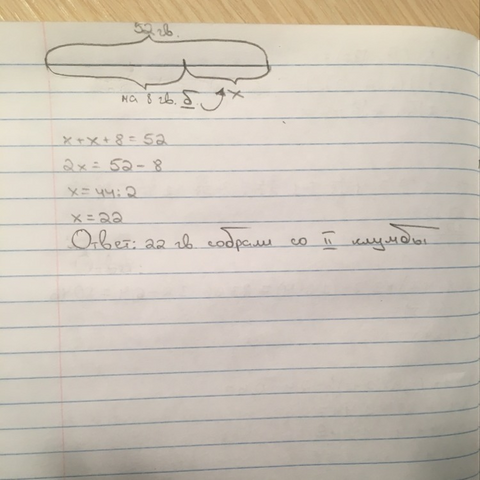 52 гв.
на 8 гв. б x
x+x+8=52
2x=52-8
x=44:2
x=22
Ответ: 22 гв собрали со II клумбы